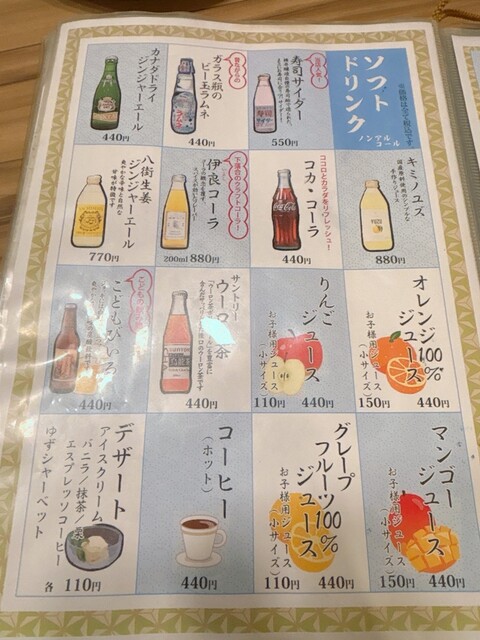 ソフトドリンク
ノンアルコール
※価格は全て税込です。
当店人気!
寿司サイダー
550円
昔ながらの
ガラス瓶の
ビー玉ラムネ
440円
カナダドライ
ジンジャーエール
440円
キミノユズ
国産原料使用のシンプルな
手作りユズジュース
880円
ココロとカラダをリフレッシュ!
コカ・コーラ
440円
下落合のクラフトコーラ!
伊良コーラ
200ml 880円
八街生姜
ジンジャーエール
爽やかな辛味と自然な
甘味が特徴です
770円
オレンジ100%
ジュース
お子様用ジュース
(小サイズ)
150円 440円
りんご
ジュース
お子様用ジュース
(小サイズ)
110円 440円
サントリー
ウーロン茶
440円
こどもびいる
440円
マンゴー
ジュース
お子様用ジュース
(小サイズ)
150円 440円
グレープ
フルーツ100%
ジュース
お子様用ジュース
(小サイズ)
110円 440円
コーヒー
(ホット)
440円
デザート
アイスクリーム
バニラ/抹茶/
エスプレッソコーヒー
ゆずシャーベット
各 110円